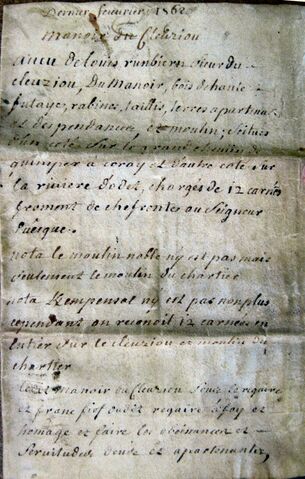 Dernier feuvrier 1682
manoir du Cleuziou
aveu de louis runbiers sieur du
cleuziou, Du manoir, bois de haute
futaye, rabines, taillis, terres apartenances
et despendances, et moulin, situés
d'un coté sur le grand chemin
quimper a coray et d'autre coté sur
la riviere d'odet, chargés de 12 carnés
froment de chefrentes au Seigneur
Evesque.
nota le moulin noble ny est pas mais
seulement le moulin du chartier
nota Kempensal ny est pas non plus
cependant on reconoit 12 carnees en
entier sur le cleuziou et moulin du
chartier
ledit manoir du cleuziou Sous le regaire
et franc fief dudit regaire a foy et
homage et faire les obeissances et
Servitudes deues et apartenantes,